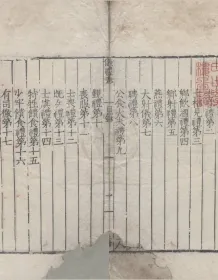 鄉飲酒禮第四
鄉射禮第五
燕禮第六
大射儀第七
聘禮第八
公食大夫禮第九
覲禮第十
喪服第十一
士喪禮第十二
既夕禮第十三
士虞禮第十四
特牲饋食禮第十五
少牢饋食禮第十六
有司徹第十七